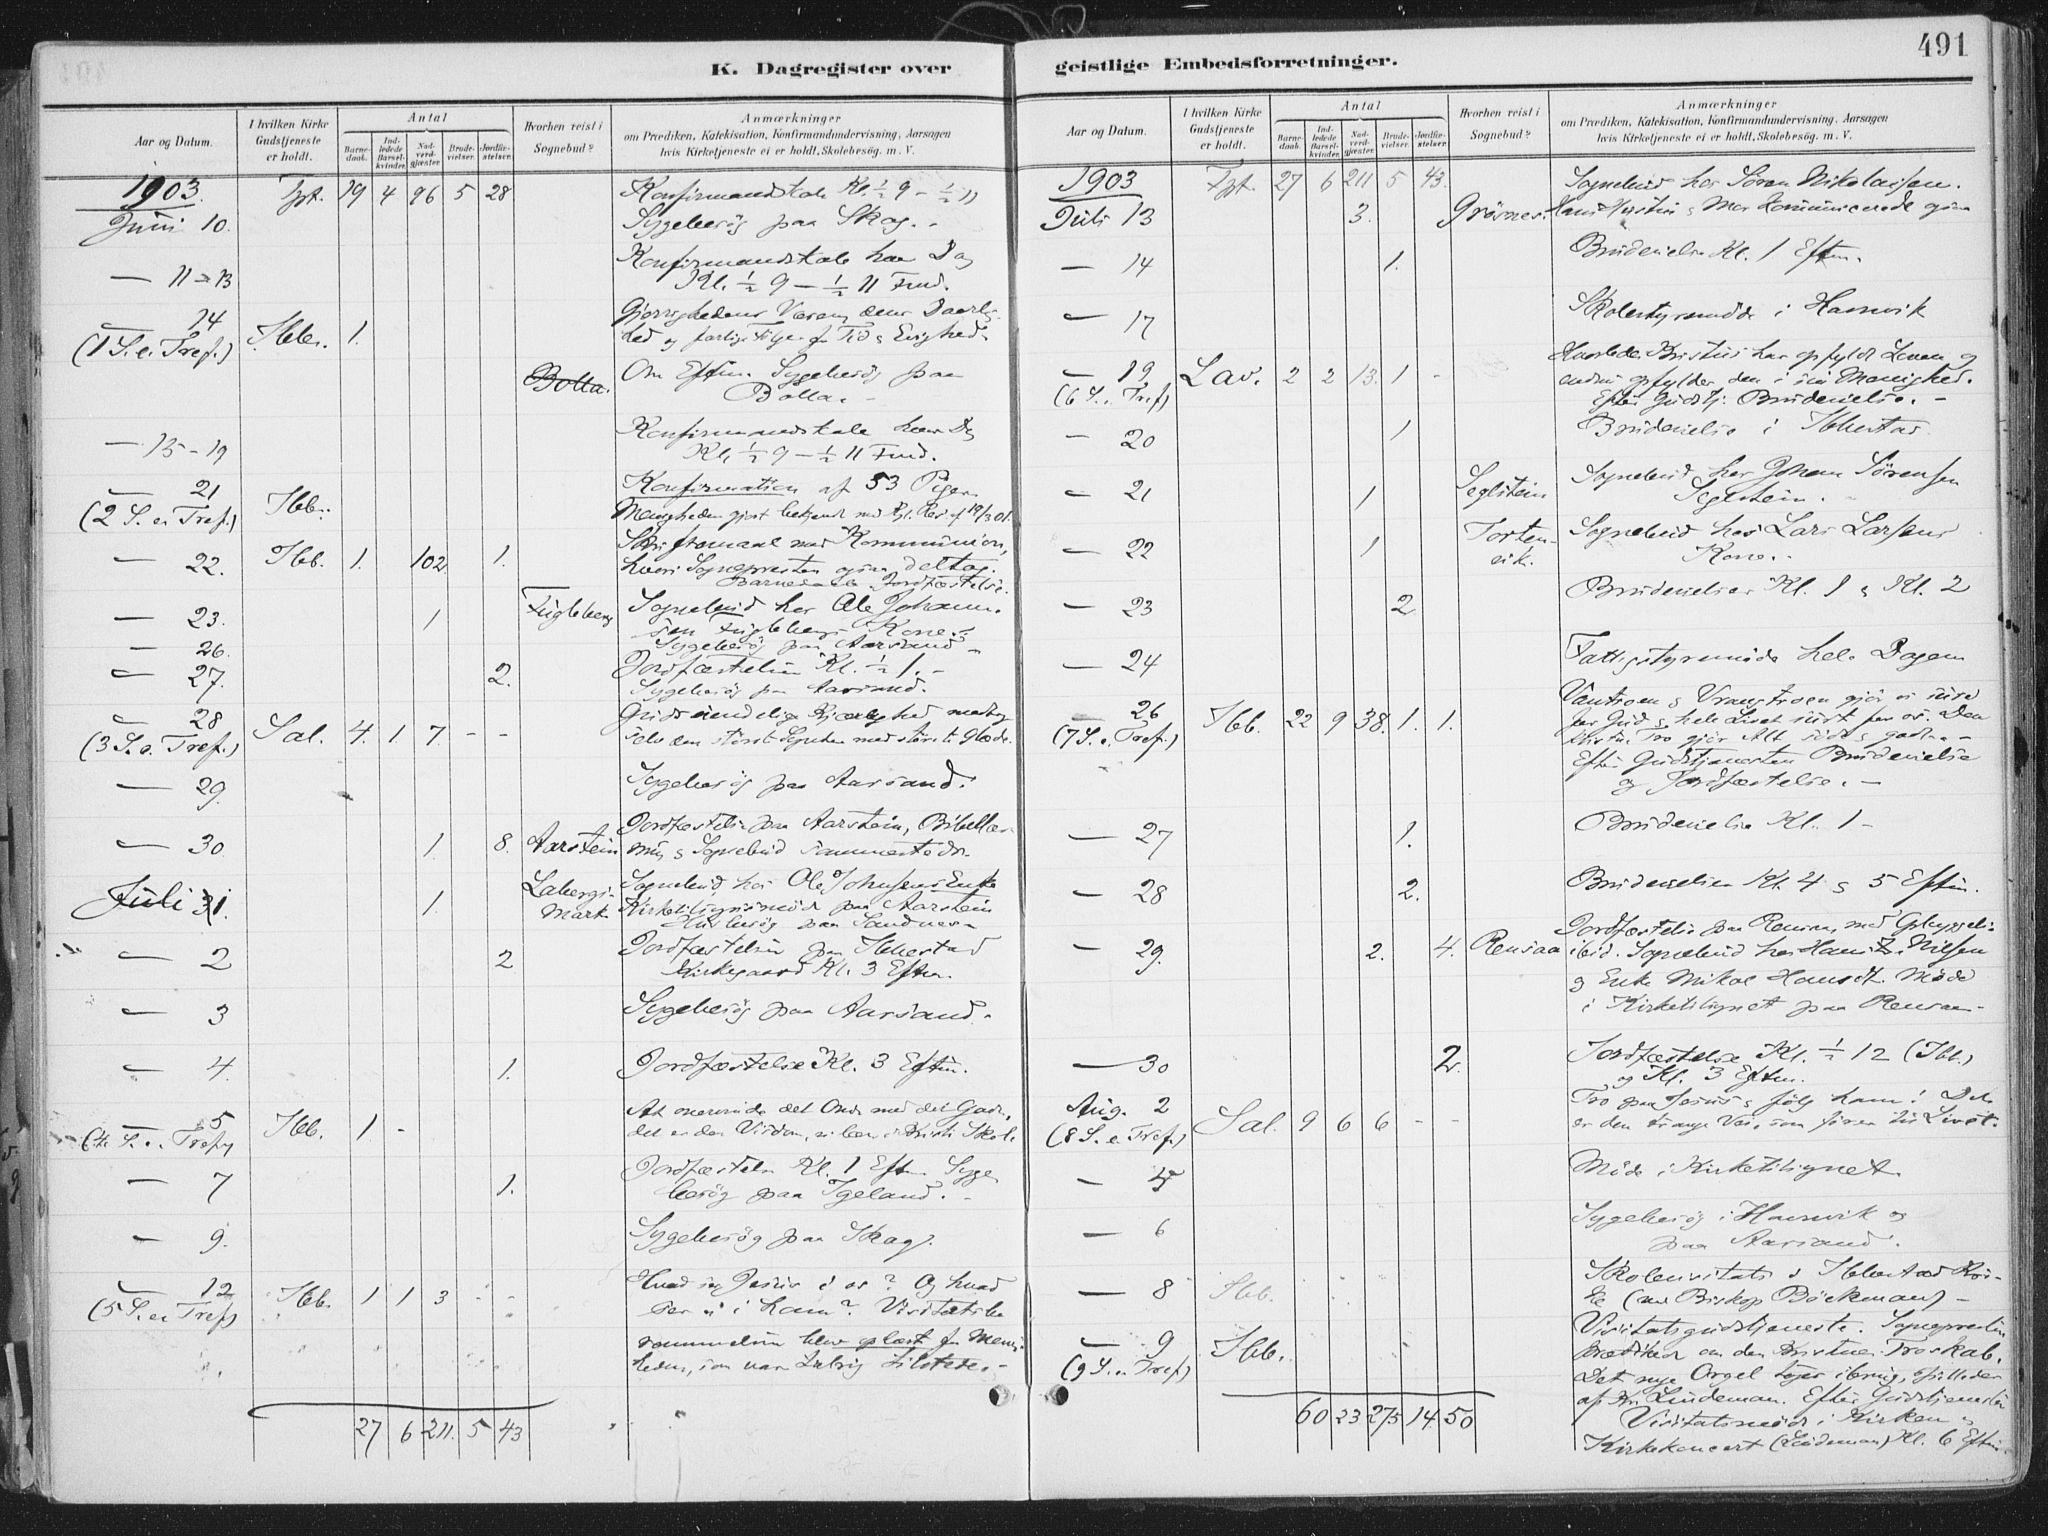 491
K. Dagregister over geistlige Embedsforretninger.
Aar og Datum.
I hvilken Kirke Gudstjeneste er holdt.
Antal
Barnedaab.
Indledede Barselkvinder.
Nadverdgjæster.
Brudevielser.
Jordfæstelser.
Hvorhen reist i Sognebud?
Anmærkninger
om Prædiken, Katekisation, Konfirmandundervisning, Aarsagen
hvis Kirketjeneste ei er holdt, Skolebesøg. m. V.
1903. Fgt. 19 4 96 5 28 Konfirmandskole Kl. ½ 9 - ½ 11
Juni 10. Sygebesøg paa Skog. -
— 11-13 Konfirmandskole hver Dag
Kl. ½ 9 - ½ 11 Fmd.
— 14 Ibb. 1. Gjerrighedens Væsen, dens Daarlig-
(1 S. e. Tref.) hed og Følger for Tid & Evighed.
Bolla. Om Eftm. Sygebesøg paa
Bolla. -
— 15-19 Konfirmandskole hver Dag
Kl. ½ 9 - ½ 11 Fmd.
— 21 Ibb. Konfirmation af 53 Piger.
(2 S. e. Tref.) Menigheden gjort bekjendt med Kgl. Res. af 19/3 01.
— 22. Ibb. 1. 102. 1. Skriftemaal med Kommunion,
hvori Sognepresten ogsaa deltog.
Barnedaab. Jordfæstelse.
— 23. 1 Fugleberg Sognebud hos Ole Johann-
sen Fuglebergs Kone. -
— 26. Sygebesøg paa Aarsand -
— 27. 2. Jordfæstelse Kl. ½ 1. -
Sygebesøg paa Aarsand.
— 28 Sal. 4. 1 7. - - Guds uendelige Kjærlighed modtog
(3 S. e. Tref.) selv den største Synder med største Glæde.
— 29. Sygebesøg paa Aarsand.
— 30 1. 8. Aarstein Jordfæstelse paa Aarstein, Bibellæs-
ning & Sognebud sammesteds.
Juli 1. 1. Labergs- Sognebud hos Ole Johnsens Enke
mark. Kirketilsynsmøde paa Aarstein
Husbesøg paa Sandnes -
— 2 2 Jordfæstelse paa Ibbestad
Kirkegaard Kl. 3 Eftm.
— 3 Sygebesøg paa Aarsand.
— 4. 1. Jordfæstelse Kl. 3 Eftm.
— 5 Ibb. 1 - At overvinde det Onde med det Gode,
(4 S. e. Tref.) det er den Visdom, vi lære i Kristi Skole
— 7 1. Jordfæstelse Kl. 1 Eftm. Syge-
besøg paa Igeland. -
— 9. Sygebesøg paa Skog.
— 12 Ibb. 1 1 3 - - Hvad ser Jesus i os? Og hvad
(5 S. e. Tref.) ser vi i ham? Visitatsbe-
rammelsen blev oplæst for Menig-
heden, som var talrig tilstede. -
27 6 211. 5 43
Aar og Datum.
I hvilken Kirke Gudstjeneste er holdt.
Antal
Barnedaab.
Indledede Barselkvinder.
Nadverdgjæster.
Brudevielser.
Jordfæstelser.
Hvorhen reist i Sognebud?
Anmærkninger
om Prædiken, Katekisation, Konfirmandundervisning, Aarsagen
hvis Kirketjeneste ei er holdt, Skolebesøg. m. V.
1903 Fgt. 27 6 211 5 43. Sognebud hos Søren Nikolaisen.
Juli 13 3. Grøsnes. Hans Hustru & Mor kommunicerede ogsaa
— 14 1. Brudevielse Kl. 1 Eftm.
— 17 Skolestyremøde i Hamnvik
— 19 Lav. 2 2 13. 1 - Hvorledes Kristus har opfyldt Loven og
(6 S. e. Tref) endnu opfylder den i sin Menighed.
Efter Gudstj. Brudevielse. -
— 20 1 Brudevielse i Ibbestad.
— 21 1 Seglstein Sognebud hos Johan Sørensen
Seglstein. -
— 22 1 Torten- Sognebud hos Lars Larsens
vik. Kone. -
— 23 2 Brudevielser Kl. 1 & Kl. 2
— 24 Fattigstyremøde hele Dagen
— 26 Ibb. 22 9 38. 1. 1. Vantroen & Vrangtroen gjør os sure
(7 S. e. Tref.) for Gud & hele Livet surt for os. Den
kristne Tro gjør Alt sødt & godt. -
Efter Gudstjenesten Brudevielse
og Jordfæstelse. -
— 27 1. Brudevielse Kl. 1 -
— 28 2. Brudevielser Kl. 4 & 5 Eftm.
— 29. 2. 4. Rensaa Jordfæstelse paa Rensaa, med Opbyggelse
ibid. Sognebud hos Hans Z. Nilsen
og Enke Mikal Hansdt. Møde
i Kirketilsynet paa Rensaa -
— 30 2. Jordfæstelse Kl. ½ 12 (Ibb.)
og Kl. 3 Eftm.
Aug. 2 Sal. 9 6 6 - - Tro paa Jesus & følg ham! Det
(8 S. e. Tref.) er den trange Vei, som fører til Livet.
— 5 Møde i Kirketilsynet.
— 6 Sygebesøg i Hamnvik og
paa Aarsand.
— 8 Ibb. Skolevisitats i Ibbestad Kir-
ke (ved Biskop Bøckman) -
— 9 Ibb. Visitatsgudstjeneste. Sognepresten
(9 S. e. Tref) prædiked om den kristnes Troskab.
Det nye Orgel toges i brug, spilledes
af Hr. Lindeman. Efter Gudstjenesten
Visitatsmøde i Kirken &
Kirkekoncert (Lindeman) Kl. 6 Eftm.
60 23 275 14. 50